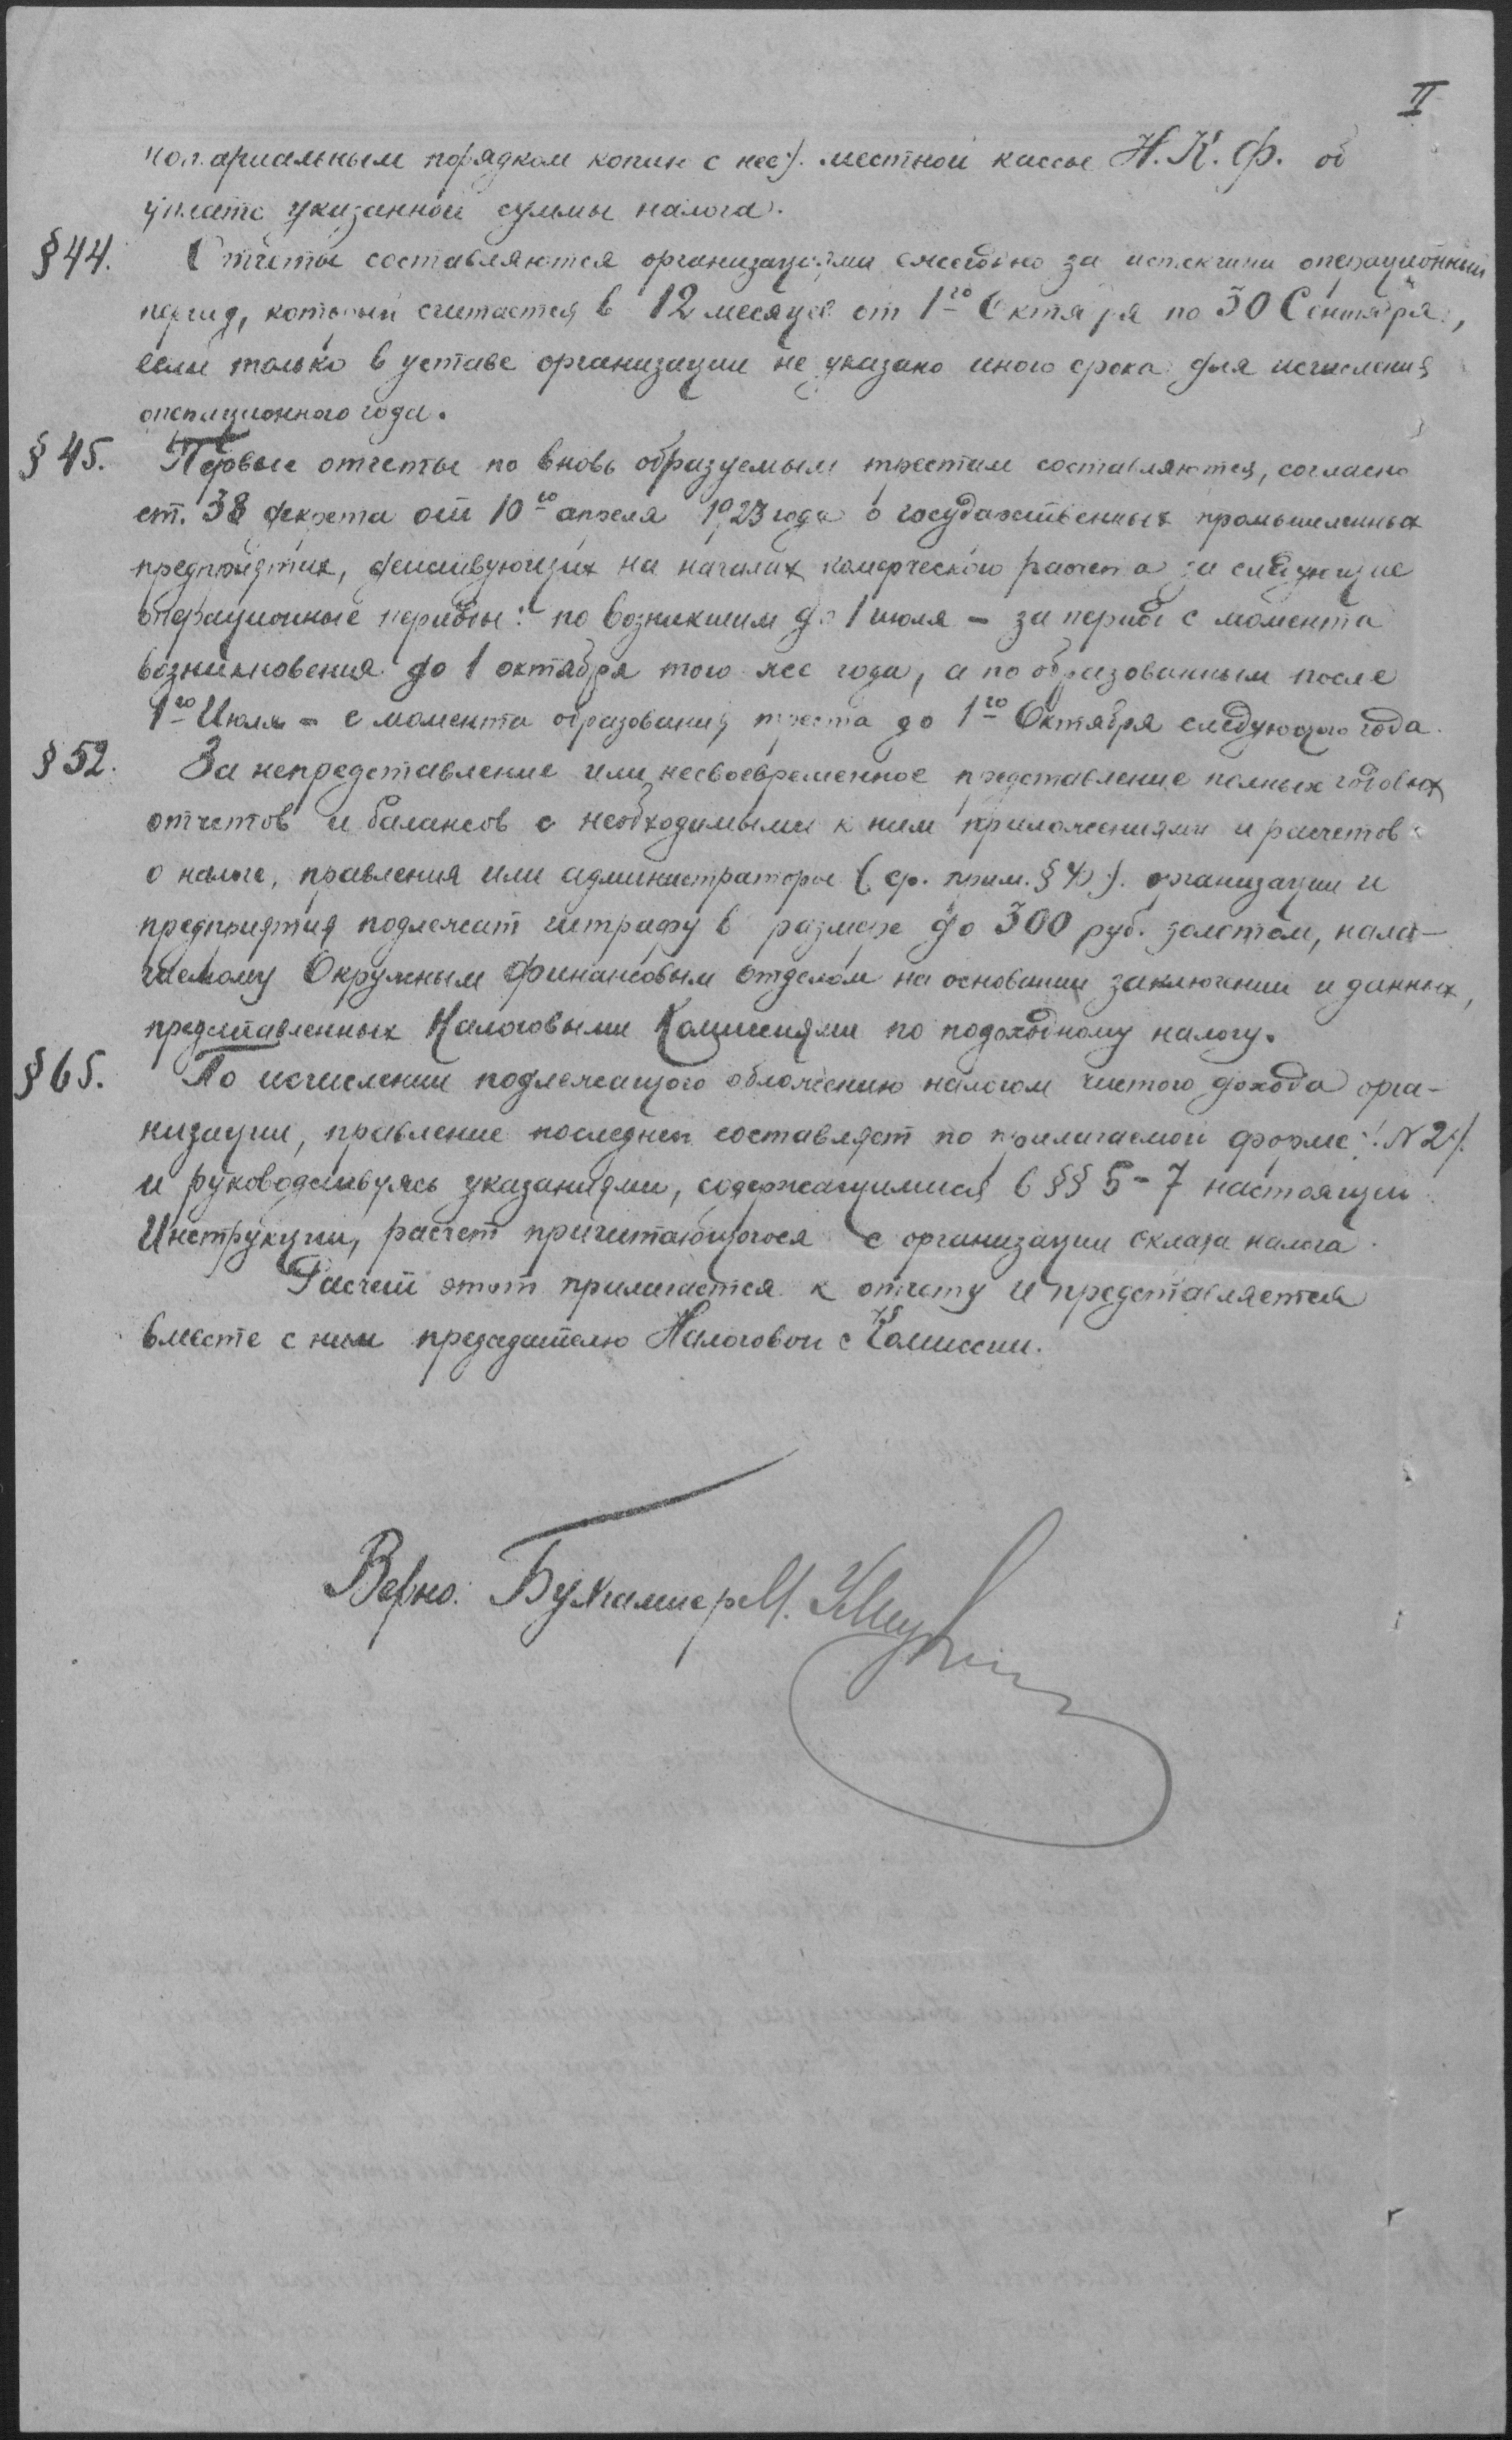 II
нотариальным порядком копии с нее/. местной кассы Н.К.Ф. об
уплате указанной суммы налога.
§44. Отчеты составляются организациями ежегодно за истекший операционный
период, который считается в 12 месяцев от 1го Октября по 30 Сентября,
если только в уставе организации не указано иного срока для исчисления
операционного года.
§45. Первые отчеты по вновь образуемым трестам составляются, согласно
ст. 38 декрета от 10го апреля 1923 года о государственных промышленных
предприятиях, действующих на началах комерческого расчета за следующие
операционные периоды: по возникшим до 1 июля – за период с момента
возникновения до 1 октября того же года, а по образованным после
1го Июля – с момента образования треста до 1го Октября следующого года.
§52. За непредставление или несвоевременное представление полных годовых
отчетов и балансов с необходимыми к ним приложениями и расчетов
о налоге, правления или администраторы (ср. прим. § 4)/. организации и
предприятия подлежат штрафу в размере до 300 руб. золотом, нала-
гаемому Окружным Финансовым Отделом на основании заключении и данных,
представленных Налоговыми Комиссиями по подоходному налогу.
§65. По исчислении подлежащого обложению налогом чистого дохода орга-
низации, правление последней составляет по прилагаемой форме /. N 2/.
и руководствуясь указаниями, содержащимися в §§ 5-7 настоящей
Инструкции, расчет причитающогося с организации оклада налога.
Расчет этот прилагается к отчету и представляется
вместе с ним председателю Налоговой Комиссии.
Верно: Бухгалтер М.